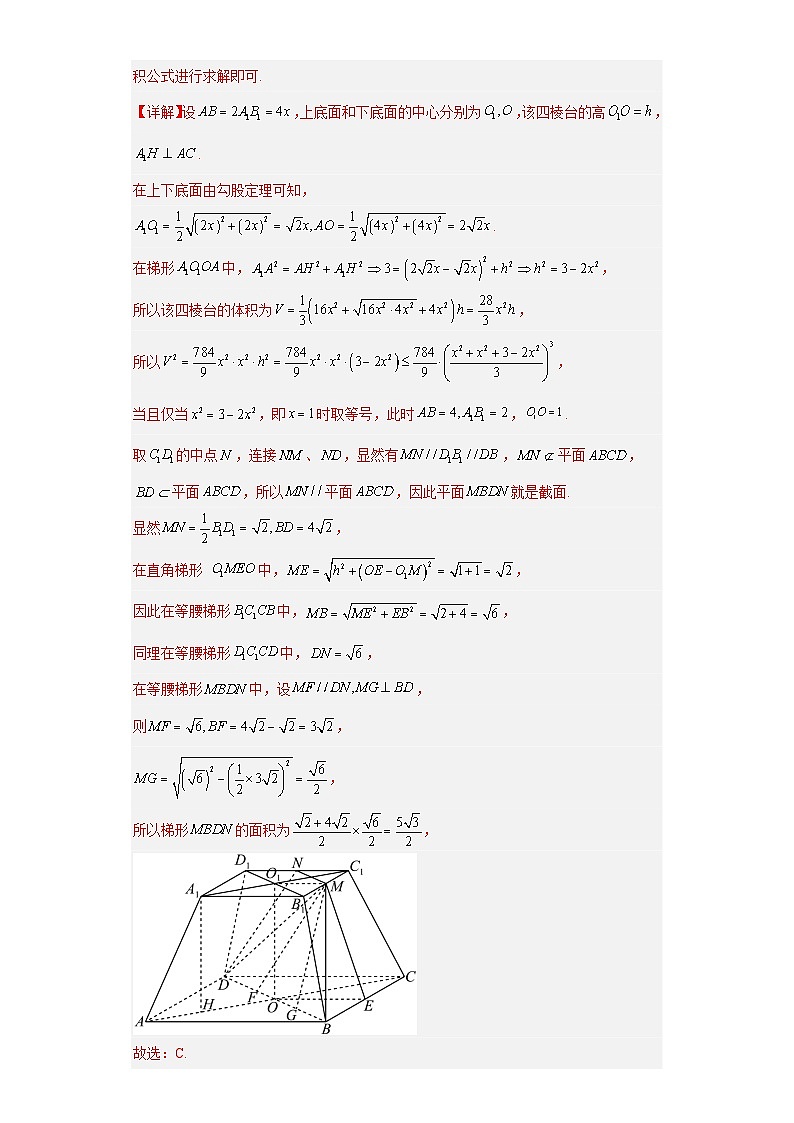 积公式进行求解即可.
【详解】设 AB = 2A₁B₁ = 4x ,上底面和下底面的中心分别为 O₁,O ,该四棱台的高 O₁O = h ,
A₁H ⊥ AC .
在上下底面由勾股定理可知,
A₁O₁ = 1/2 √((2x)² + (2x)²) = √2x, AO = 1/2 √((4x)² + (4x)²) = 2√2x .
在梯形 A₁O₁OA 中, A₁A² = AH² + A₁H² ⇒ 3 = (2√2x − √2x)² + h² ⇒ h² = 3 − 2x² ,
所以该四棱台的体积为 V = 1/3 (16x² + √(16x² · 4x²) + 4x²)h = 28/3 x²h ,
所以 V² = 784/9 x² · x² · h² = 784/9 x² · x² · (3 − 2x²) ≤ 784/9 · ((x² + x² + 3 − 2x²)/3)³ ,
当且仅当 x² = 3 − 2x² ,即 x = 1 时取等号,此时 AB = 4, A₁B₁ = 2 , O₁O = 1 .
取 C₁D₁ 的中点 N ,连接 NM 、 ND ,显然有 MN // D₁B₁ // DB , MN ⊄ 平面 ABCD ,
BD ⊂ 平面 ABCD ,所以 MN // 平面 ABCD ,因此平面 MBDN 就是截面.
显然 MN = 1/2 B₁D₁ = √2, BD = 4√2 ,
在直角梯形 O₁MEO 中, ME = √(h² + (OE − O₁M)²) = √(1+1) = √2 ,
因此在等腰梯形 B₁C₁CB 中, MB = √(ME² + EB²) = √(2+4) = √6 ,
同理在等腰梯形 D₁C₁CD 中, DN = √6 ,
在等腰梯形 MBDN 中,设 MF // DN, MG ⊥ BD ,
则 MF = √6, BF = 4√2 − √2 = 3√2 ,
MG = √((√6)² − (1/2 × 3√2)²) = √6/2 ,
所以梯形 MBDN 的面积为 (√2 + 4√2)/2 × √6/2 = 5√3/2 ,
D₁ N C₁
O₁
A₁ M
B₁
D C
H F O E
A G
B
故选: C.